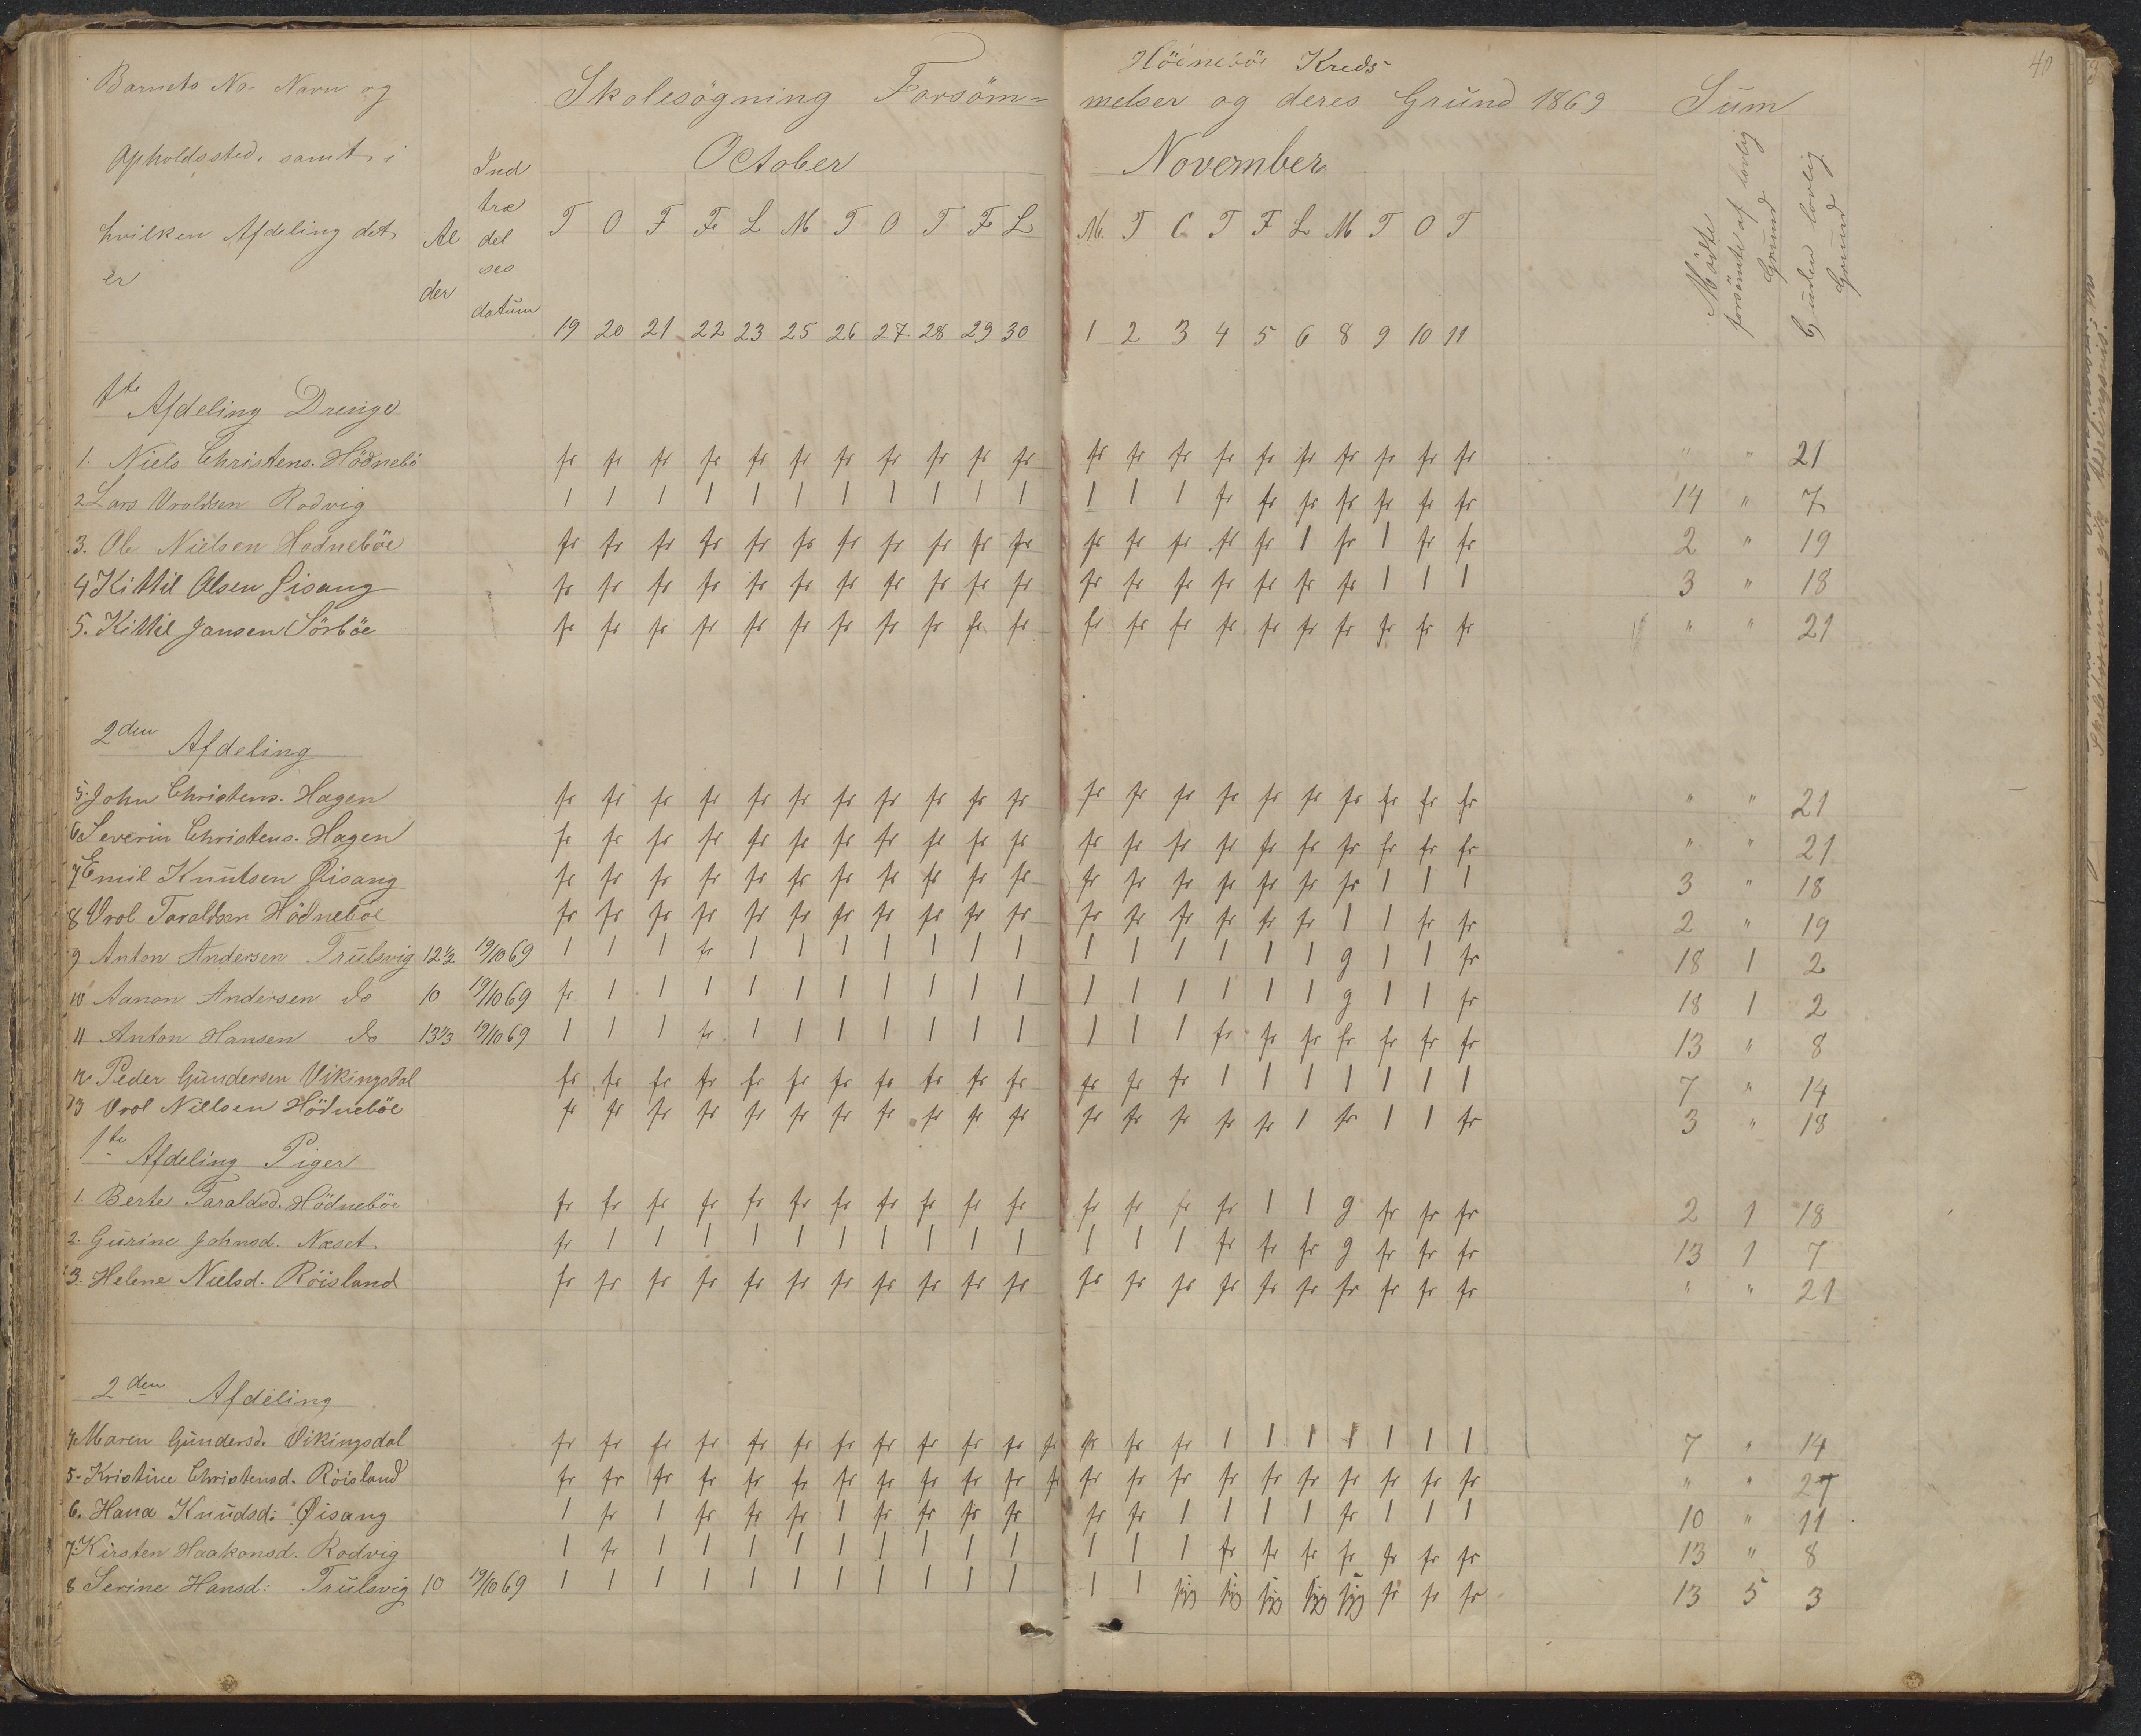 Höinesöe Kreds
40
Barnets No. Navn og Skolesögning Forsöm= melser og deres Grund 1869 Sum
Opholdssted, samt i Ind October November
hvilken Afdeling det Al træ T O F F L M T O T F L M. T O T F L M T O T Mödte forsömte af lovlig Grund uden lovlig Grund
er der del ses
datum 19 20 21 22 23 25 26 27 28 29 30 1 2 3 4 5 6 8 9 10 11
1te Afdeling Drenge
1. Niels Christens. Hödnebö fr fr fr fr fr fr fr fr fr fr fr fr fr fr fr fr fr fr fr fr fr " " 21
2 Lars Vroldsen Rodvig 1 1 1 1 1 1 1 1 1 1 1 1 1 1 fr fr fr fr fr fr fr 14 " 7
3. Ole Nielsen Hodneböe fr fr fr fr fr fr fr fr fr fr fr fr fr fr fr fr 1 fr 1 fr fr 2 " 19
4 Kittil Olsen Øisang fr fr fr fr fr fr fr fr fr fr fr fr fr fr fr fr fr fr 1 1 1 3 " 18
5. Kittil Jansen Sörböe fr fr fr fr fr fr fr fr fr fr fr fr fr fr fr fr fr fr fr fr fr " " 21
2den Afdeling
5. John Christens. Hagen fr fr fr fr fr fr fr fr fr fr fr fr fr fr fr fr fr fr fr fr fr " " 21
6 Severin Christens. Hagen fr fr fr fr fr fr fr fr fr fr fr fr fr fr fr fr fr fr fr fr fr " " 21
7 Emil Knutsen Øisang fr fr fr fr fr fr fr fr fr fr fr fr fr fr fr fr fr fr 1 1 1 3 " 18
8 Vrol Taraldsen Hödneböe fr fr fr fr fr fr fr fr fr fr fr fr fr fr fr fr fr 1 1 fr fr 2 " 19
9 Anton Andersen Trulsvig 12½ 19/10 69 1 1 1 fr 1 1 1 1 1 1 1 1 1 1 1 1 1 g 1 1 fr 18 1 2
10 Aanon Andersen do 10 19/10 69 fr 1 1 1 1 1 1 1 1 1 1 1 1 1 1 1 1 g 1 1 fr 18 1 2
11 Anton Hansen do 13⅓ 19/10 69 1 1 1 fr 1 1 1 1 1 1 1 1 1 1 fr fr fr fr fr fr fr 13 " 8
12 Peder Gundersen Vikingsdal fr fr fr fr fr fr fr fr fr fr fr fr fr fr 1 1 1 1 1 1 1 7 " 14
13 Vrol Nielsen Hödneböe fr fr fr fr fr fr fr fr fr fr fr fr fr fr fr fr 1 fr 1 1 fr 3 " 18
1te Afdeling Piger
1. Berte Taraldsd. Hödneböe fr fr fr fr fr fr fr fr fr fr fr fr fr fr fr 1 1 g fr fr fr 2 1 18
2. Gurine Johnsd. Næset fr 1 1 1 1 1 1 1 1 1 1 1 1 1 fr fr fr g fr fr fr 13 1 7
3. Helene Nielsd. Röisland fr fr fr fr fr fr fr fr fr fr fr fr fr fr fr fr fr fr fr fr fr " " 21
2den Afdeling
4. Maren Gundersd. Vikingsdal fr fr fr fr fr fr fr fr fr fr fr fr fr fr fr 1 1 1 1 1 1 1 7 " 14
5. Kristine Christensd. Röisland fr fr fr fr fr fr fr fr fr fr fr fr fr fr fr fr fr fr fr fr fr fr " " 21
6. Hana Knudsd: Øisang 1 fr 1 fr fr fr 1 fr fr fr fr fr fr 1 1 1 1 fr 1 1 1 10 " 11
7. Kirsten Haakonsd. Rodvig 1 fr 1 1 1 1 1 1 1 1 1 1 1 1 fr fr fr fr fr fr fr 13 " 8
8 Serine Hansd: Trulsvig 10 19/10 69 1 1 1 1 1 1 1 1 1 1 1 1 1 syg syg syg syg syg fr fr fr 13 5 3